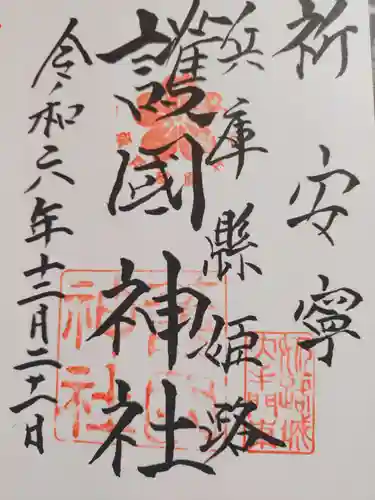 祈安寧
兵庫縣姫路
護國神社
令和六年十二月二十八日